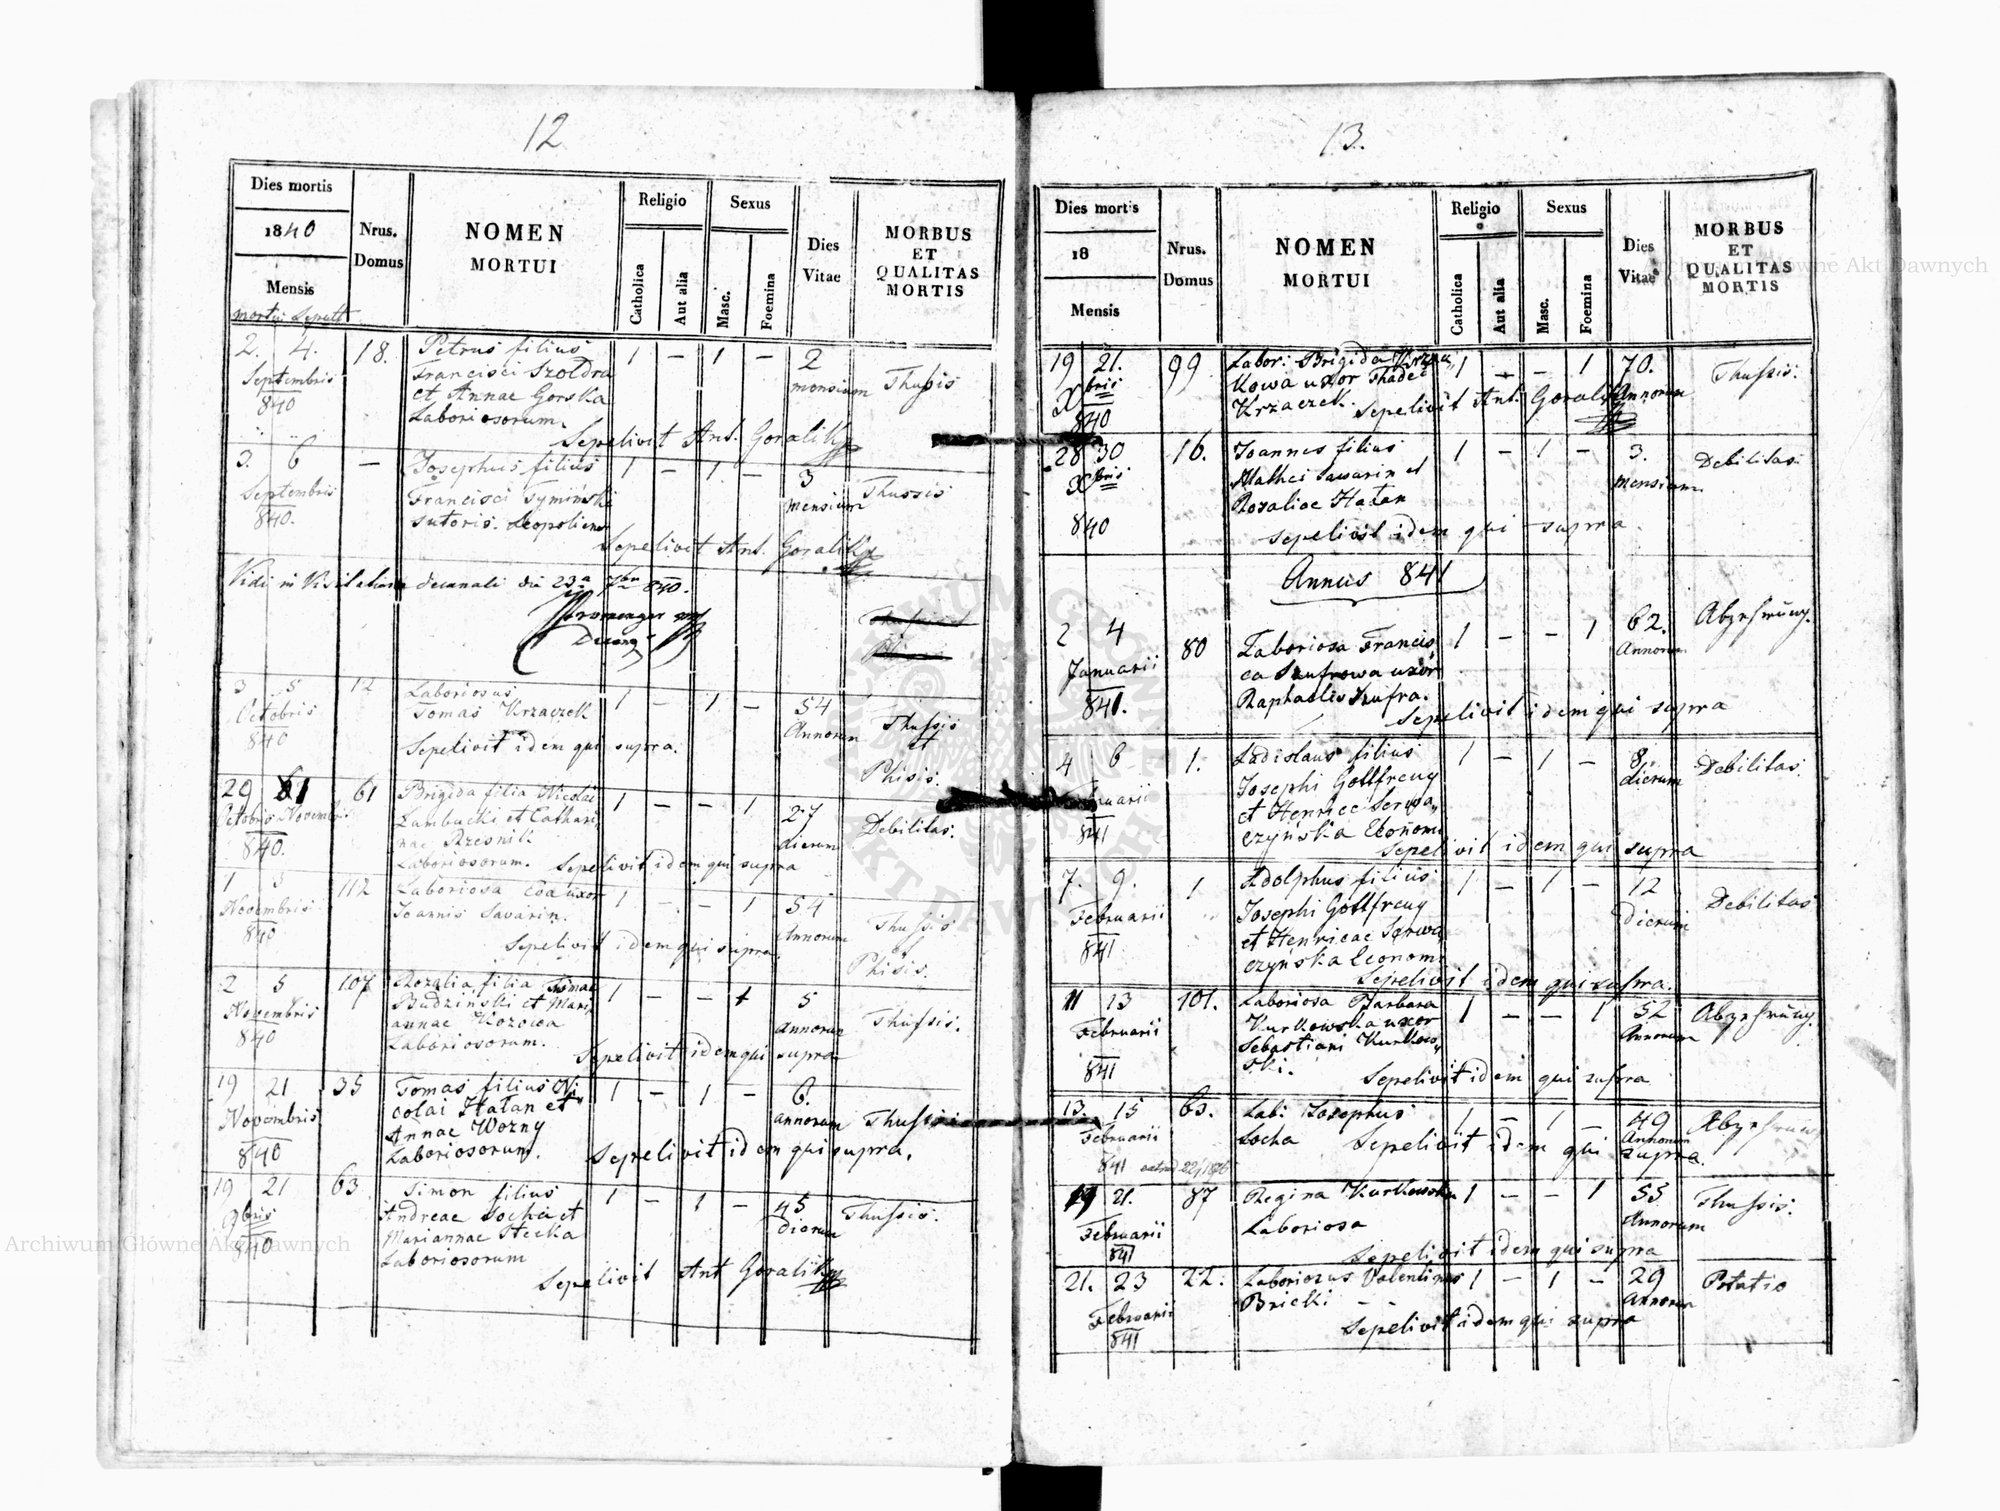 12
Dies mortis
1840
Mensis
mortui Sepulti
Nrus.
Domus
NOMEN
MORTUI
Religio
Catholica
Aut alia
Sexus
Masc.
Foemina
Dies
Vitae
MORBUS
ET
QUALITAS
MORTIS
2. 4. 18. Petrus filius 1 – 1 – 2
Septembris Francisci Szoldra mensium Thussis
840 et Annae Gorska
Laboriosorum.
Sepelivit Ant. Goralik
3. 6 – Josephus filius 1 – 1 – 3
Septembris Francisci Tyminski mensium Thussis
840. sutoris. Leopoliens
Sepelivit Ant. Goralik
Vidi in Visitatione decanali die 23a 7br 840.
3 5 12 Laboriosus 1 – 1 – 54
Octobris Tomas Krzaczek Annorum Thussis
840 et
Sepelivit idem qui supra.
Phisis.
20 1 61 Brigida filia Nicolai 1 – – 1 27
Octobris Novembr. Lambucki et Cathari, dierum Debilitas.
840. nae Rzesnik
Laboriosorum. Sepelivit idem qui supra
1 3 112 Laboriosa Eva uxor 1 – – 1 54
Novembris Joannis Savarin. Annorum Thussis
840 et
Sepelivit idem qui supra.
Phisis.
2 5 107 Rozalia filia Tomae 1 – – 1 5
Novembris Budziński et Mari, annorum Thussis.
840 annae Kozowa
Laboriosorum.
Sepelivit idem qui supra
19 21 35 Tomas filius Ni, 1 – 1 – 6.
Novembris colai Hałan et annorum Thussis
840 Annae Wozny
Laboriosorum. Sepelivit idem qui supra.
19 21 63 Simon filius 1 – 1 – 45
9bris Andreae Socha et dierum Thussis.
840 Mariannae Stecka
Laboriosorum
Sepelivit Ant Goralik
13.
Dies mortis
18
Mensis
Nrus.
Domus
NOMEN
MORTUI
Religio
Catholica
Aut alia
Sexus
Masc.
Foemina
Dies
Vitae
MORBUS
ET
QUALITAS
MORTIS
19 21. 99 Labor: Brigida Krzacz, 1 – – 1 70. Thussis.
Xbris kowa uxor Thadei Annorum
840 Krzaczek. Sepelivit Ant. Goralik
28 30 16. Joannes filius 1 – 1 – 3. Debilitas
Xbris Mathei Sawarin et mensium
840 Rozaliae Hałan
Sepelivit idem qui supra
Annus 841
2 4 80 Laboriosa Francis, 1 – – 1 62. Abzehrung.
Januarii ca Szufrowa uxor Annorum
841. Raphaelis Szufra.
Sepelivit idem qui supra
4 6 1. Ladislaus filius 1 – 1 – 8. Debilitas.
Josephi Gottfreuy dierum
841 et Henricae Serwa,
czyńska Econom
Sepelivit idem qui supra
7. 9. 1 Adolphus filius 1 – 1 – 12 Debilitas
Februarii Josephi Gottfreuy Dierum
841 et Henricae Serwa,
czyńska Econom
Sepelivit idem qui supra.
11 13 101. Laboriosa Barbara 1 – – 1 52 Abzehrung.
Februarii Kurkowska uxor Annorum
841 Sebastiani Kurkow,
ski.
Sepelivit idem qui supra
13. 15 65. Lab: Josephus 1 – 1 – 49 Abzehrung
Februarii Socha Annorum
Sepelivit idem qui supra.
841
19 21. 87 Regina Kurkowska 1 – – 1 55 Thussis.
Februarii Laboriosa Annorum
841
Sepelivit idem qui supra
21. 23 22. Laboriosus Valentinus 1 – 1 – 29 Potatio
Februarii Bricki Annorum
841
Sepelivit idem qui supra
Archiwum Główne Akt Dawnych
Archiwum Główne Akt Dawnych
ARCHIWUM GŁÓWNE AKT DAWNYCH